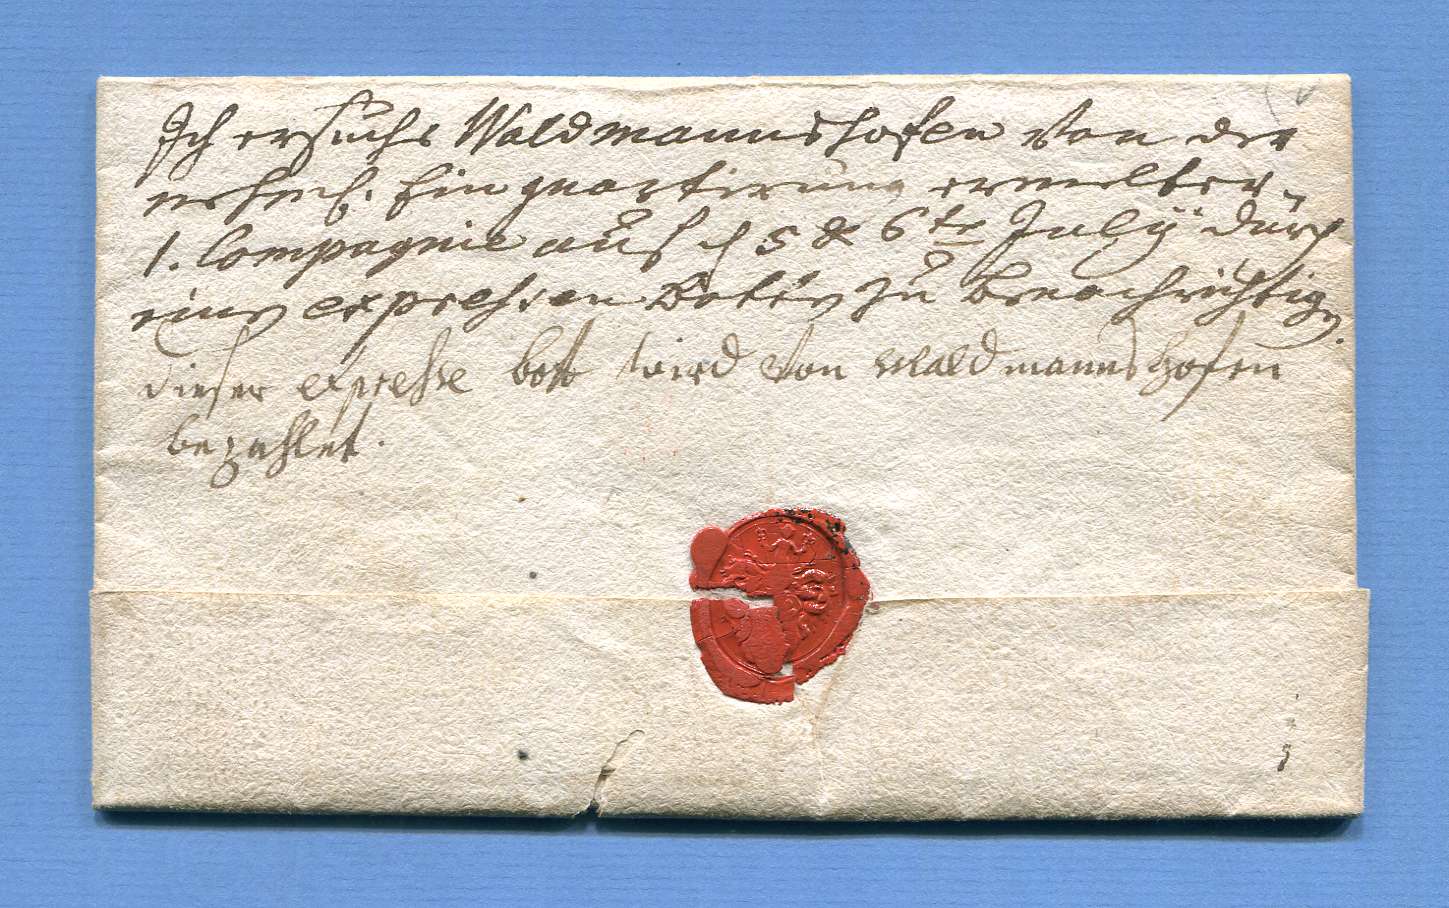 Ich ersuche Waldmannshofen von der
Einquartierung ermelter
1. Compagnie auf d 5 & 6te July durch
einen expressen Boten zu benachrichtigen.
dieser expresse bott wird von Waldmannshofen
bezahlet.